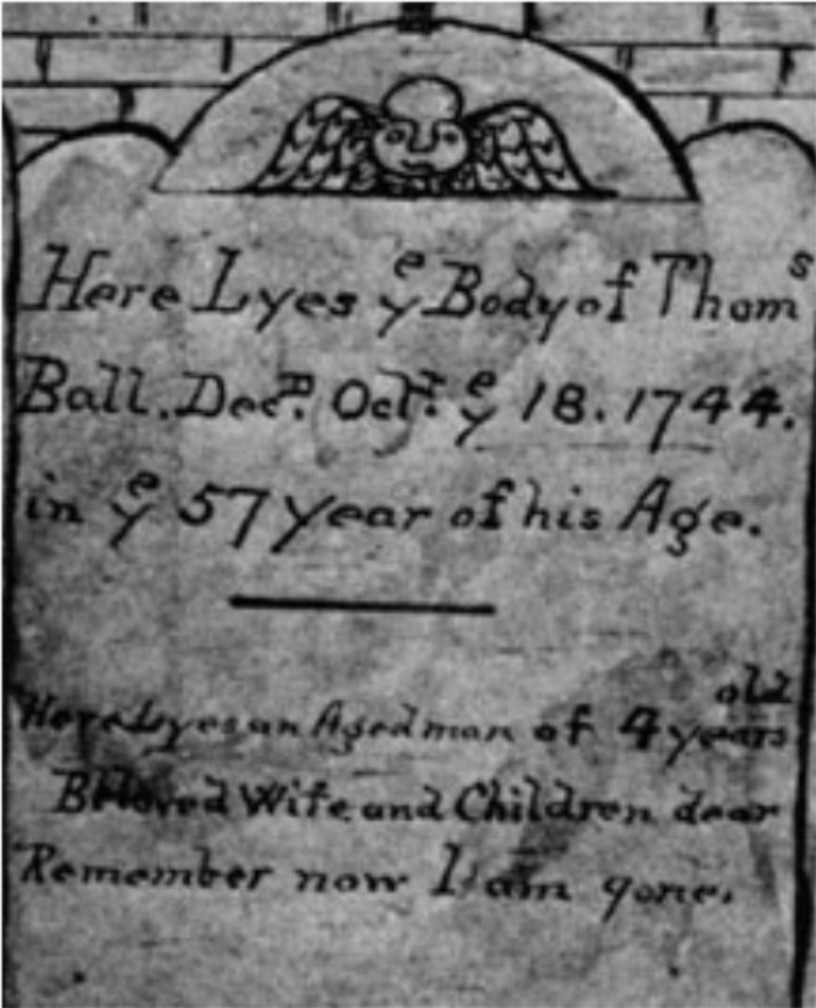 Here Lyes yᵉ Body of Thomˢ
Ball. Decᴰ. Octʳ. yᵉ 18. 1744.
in yᵉ 57 year of his Age.
old
Here Lyes an Aged man of 4 years
Beloved Wife and Children dear
Remember now I am gone.